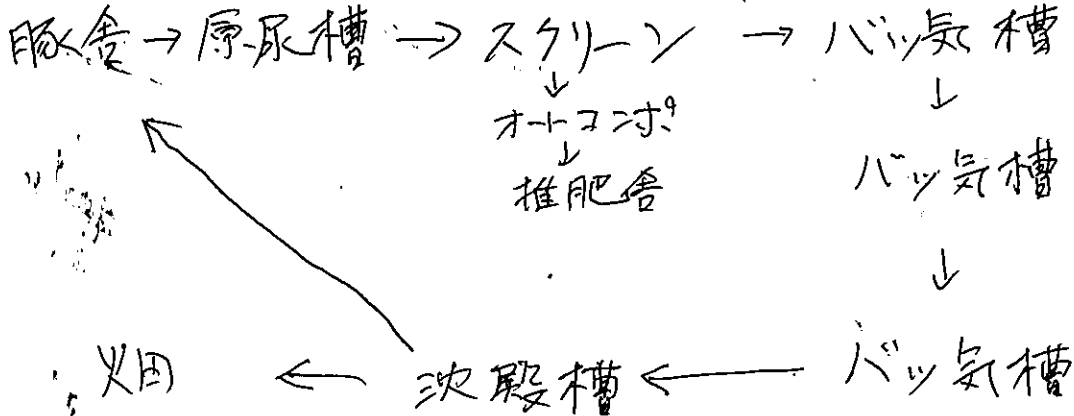 豚舎→原尿槽→スクリーン→バッ気槽
↓ ↓
オートコンポ
↓
推肥舎 バッ気槽
↓
畑 ← 沈殿槽 ← バッ気槽